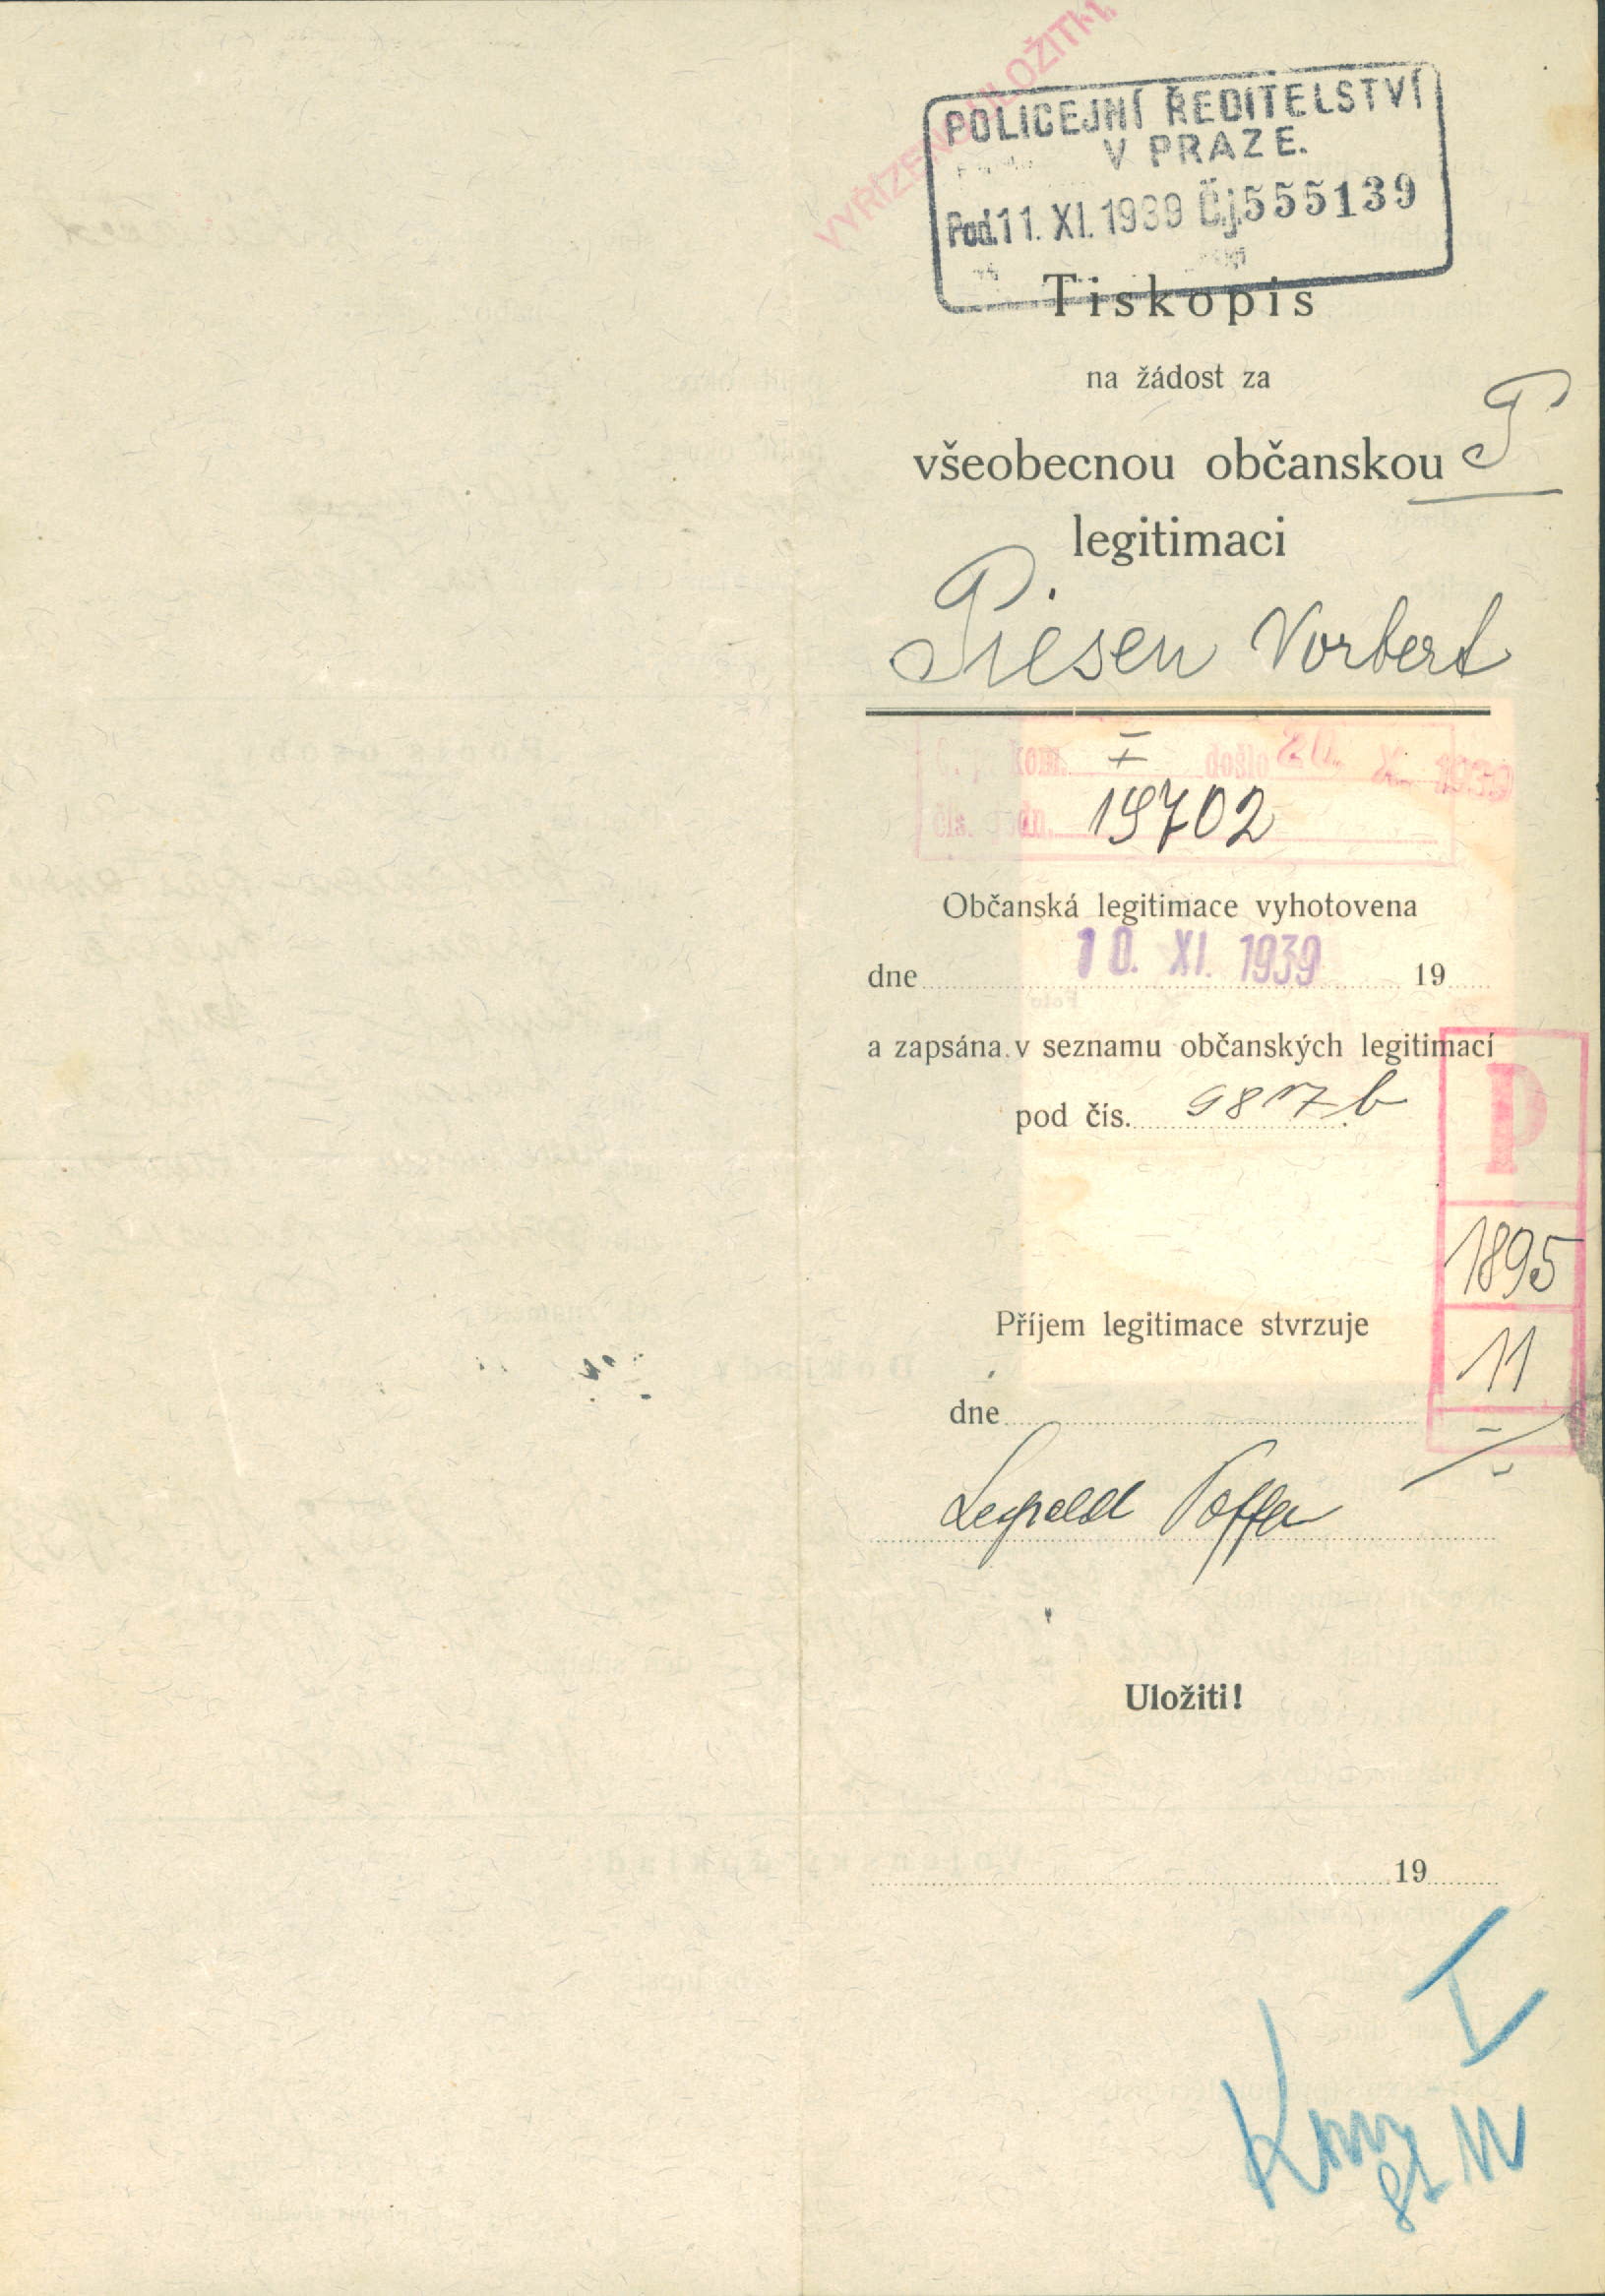 VYŘÍZENO ULOŽITI!
POLICEJNÍ ŘEDITELSTVÍ
V PRAZE.
Pod. 11. XI. 1939 Č.j. 555139
Tiskopis
na žádost za
P
všeobecnou občanskou
legitimaci
Piesen Norbert
kom. I došlo 20. X. 1939
čís. 19702
Občanská legitimace vyhotovena
dne 10. XI. 1939 19
a zapsána v seznamu občanských legitimací
pod čís. 9817 b
P
1895
11
Příjem legitimace stvrzuje
dne
Leopold
Uložiti!
19
I